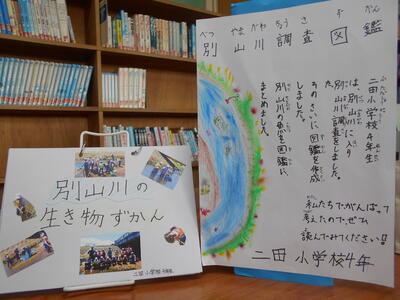 べつ やま かわ ちょう さ ず かん
別山川調査図鑑
二田小学校4年生
は、別山川に入り
別山川調査をしました。
そのさいに図鑑を作成
しました。
別山川の魚を図鑑に
まとめました。
私たちでがんばって
考えたのでぜひ
読んでみてください!!
二田小学校4年
別山川の
生き物ずかん
二田小学校